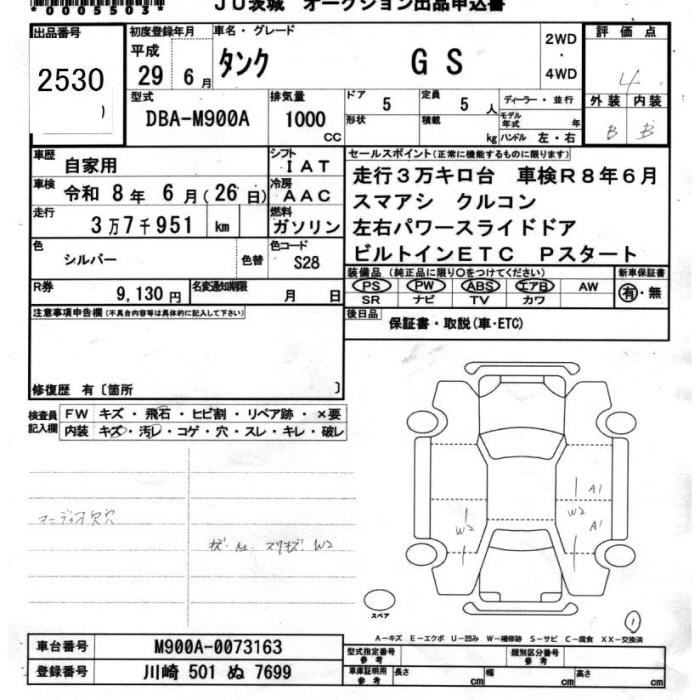 *0005503*
JU茨城 オークション出品申込書
出品番号 初度登録年月 車名・グレード 評価点
2530 平成 29 6月 タンク GS 2WD・4WD 4
外装 内装
B B
型式 排気量 ドア 5 定員 5人 ディーラー・並行
DBA-M900A 1000 CC 形状 積載 kg モデル年式 年 ハンドル 左・右
車歴 自家用 シフト IAT
車検 令和 8年 6月(26日) 冷房 AAC
走行 3万7千951 km 燃料 ガソリン
色 シルバー 色替 色コード S28
R券 9,130円 名変通知期限 月 日
セールスポイント(正常に機能するものに限ります)
走行3万キロ台 車検R8年6月
スマアシ クルコン
左右パワースライドドア
ビルトインETC Pスタート
装備品(純正品に限り○をつけてください) 新車保証書
PS PW ABS エアB AW 有・無
SR ナビ TV カワ
後日品 保証書・取説(車・ETC)
注意事項申告欄(不具合内容等は具体的に記入して下さい)
修復歴 有〔箇所 〕
検査員記入欄 FW キズ・飛石・ヒビ割・リペア跡・×要
内装 キズ・汚レ・コゲ・穴・スレ・キレ・破レ
オーディオ欠穴
キズ・A1. スリキズ・W2
W2
A1
W2
A1
スペア
1
A−キズ E−エクボ U−凹み W−補修跡 S−サビ C−腐食 XX−交換済
車台番号 M900A-0073163
登録番号 川崎 501 ぬ 7699
型式指定番号 参考 類別区分番号 参考
車庫証明用 参考 長さ cm 幅 cm 高さ cm